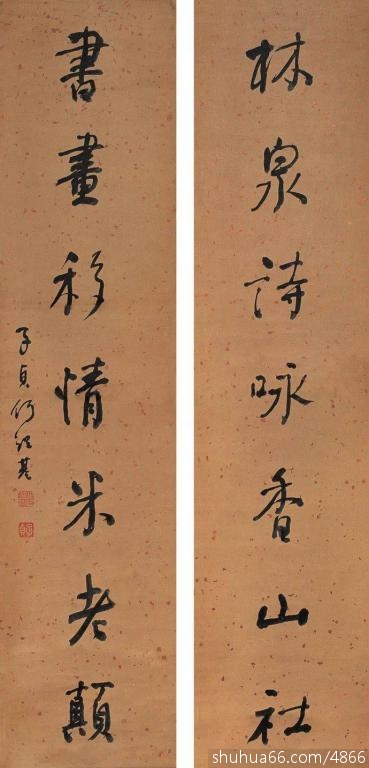 林泉詩咏香山社
書畫移情米老顛
子貞何紹基
shuhua66.com/4866